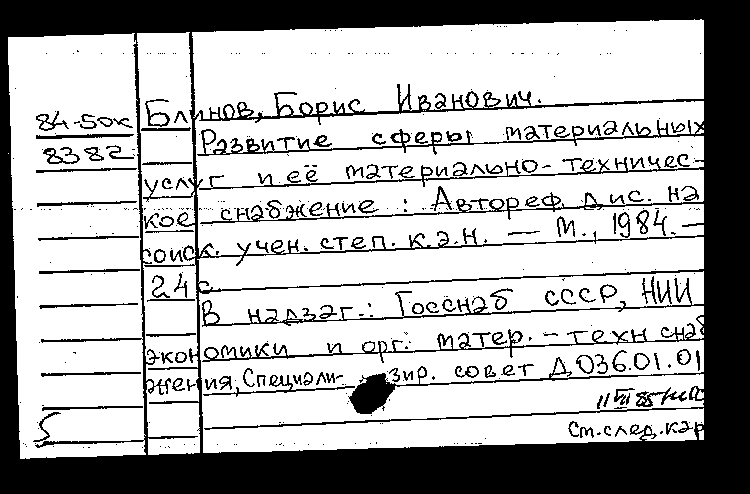 84-50к Блинов, Борис Иванович.
8382 Развитие сферы материальных
услуг и её материально-техничес-
кое снабжение : Автореф. дис. на
соиск. учен. степ. к.э.н. — М., 1984. —
24 с.
В надзаг.: Госснаб СССР, НИИ
экономики и орг. матер.-техн снаб
жения, Специали- зир. совет Д 036.01.01
См. след. кар